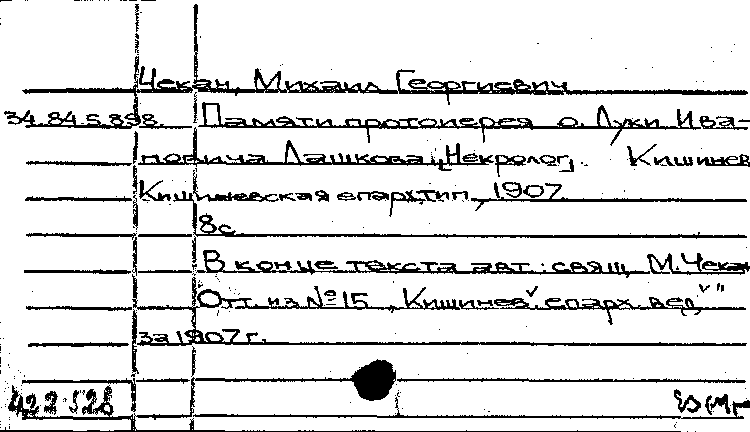 Чекан, Михаил Георгиевич
34.84.5.898. Памяти протоиерея о. Луки Ива-
новича Лашкова. [Некролог]. Кишинев
Кишиневская епарх. тип., 1907.
8с.
В конце текста авт.: свящ. М. Чекан
Отт. из № 15 „Кишинев. епарх. вед."
за 1907 г.
422 528